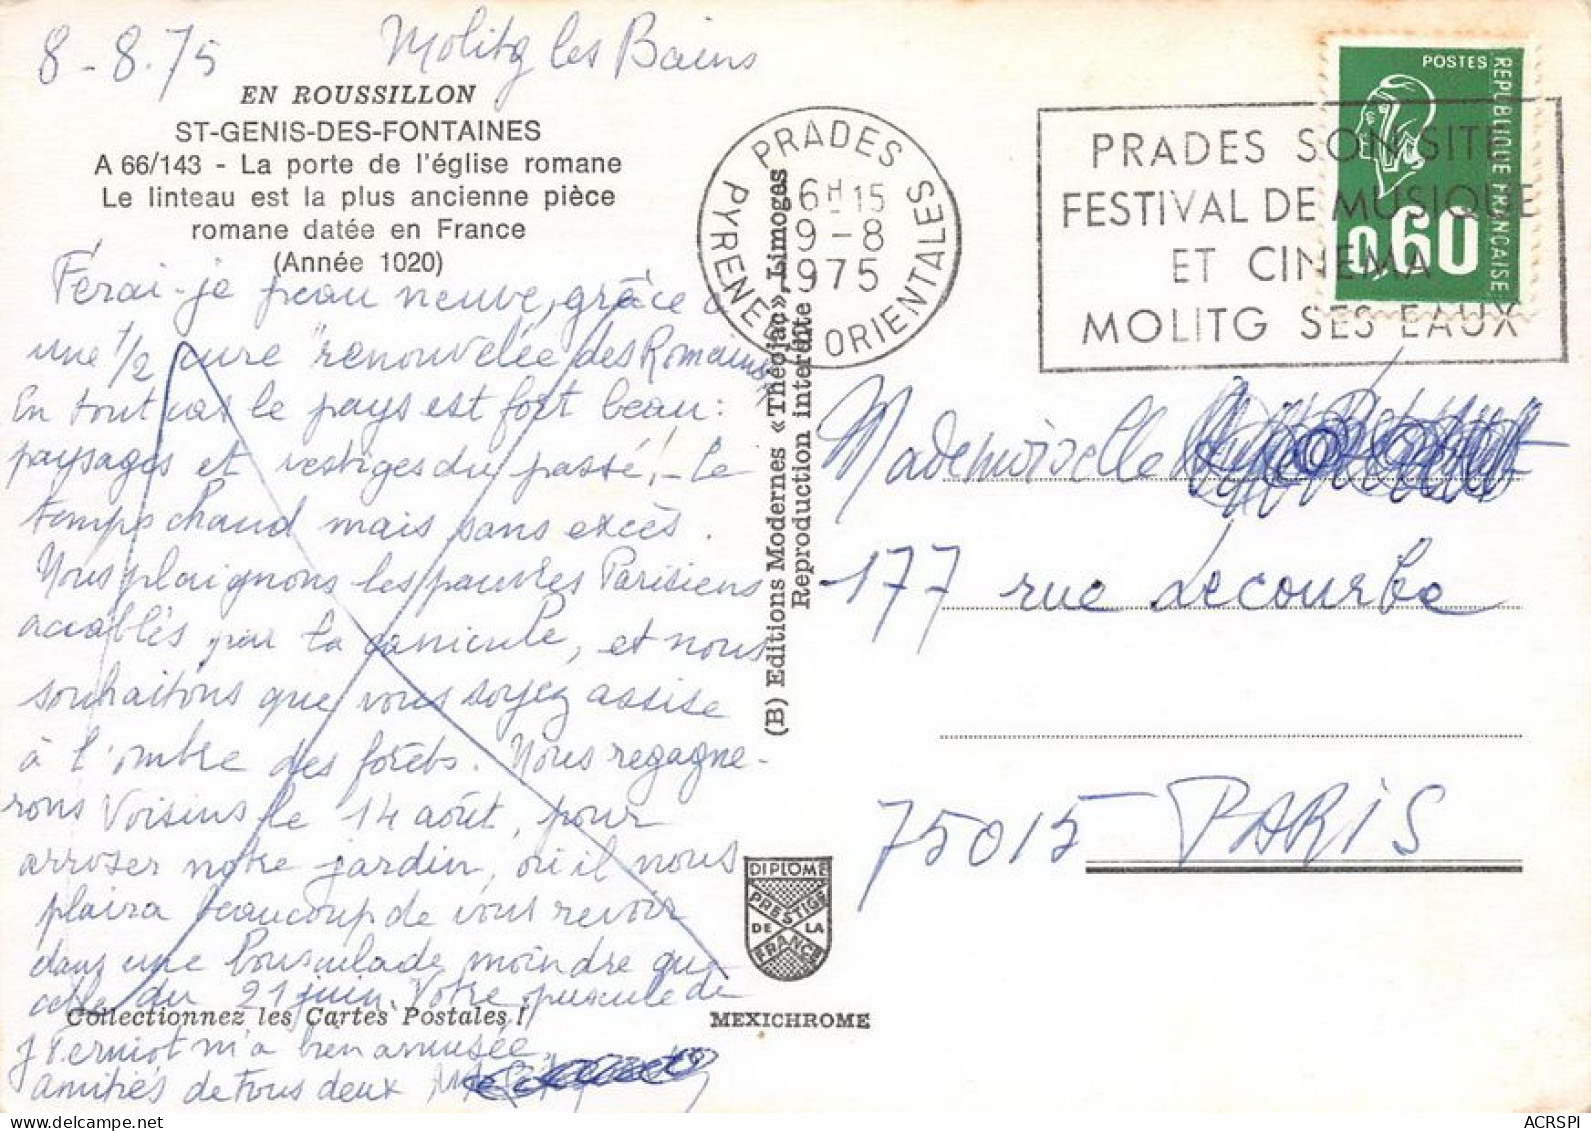 8-8.75 Molitg les Bains
EN ROUSSILLON
ST-GENIS-DES-FONTAINES
A 66/143 - La porte de l'église romane
Le linteau est la plus ancienne pièce
romane datée en France
(Année 1020)
Ferai-je peau neuve, grâce à
une 1/2 cure "renouvelée des Romains"
En tout cas le pays est fort beau :
paysages et vestiges du passé ! - Le
temps chaud mais sans excès.
Nous plaignons les pauvres Parisiens
accablés par la canicule, et nous
souhaitons que vous soyez assise
à l'ombre des forêts. Nous regagne-
rons Voisins le 14 août, pour
arroser notre jardin, où il nous
plaira beaucoup de vous revoir
dans une bousculade moindre que
celle du 21 juin. Votre de
Collectionnez les Cartes Postales !
J Perniot m'a bien amusée.
amitiés de tous deux
(B) Editions Modernes «Théojac», Limoges
Reproduction interdite
PRADES
6H15
9-8
1975
PYRENEES ORIENTALES
PRADES SON SITE
FESTIVAL DE MUSIQUE
ET CINEMA
MOLITG SES EAUX
POSTES
REPUBLIQUE FRANCAISE
0,60
Mademoiselle
177 rue Lecourbe
75015 PARIS
DIPLOME
PRESTIGE
DE LA
FRANCE
MEXICHROME
ACRSPI